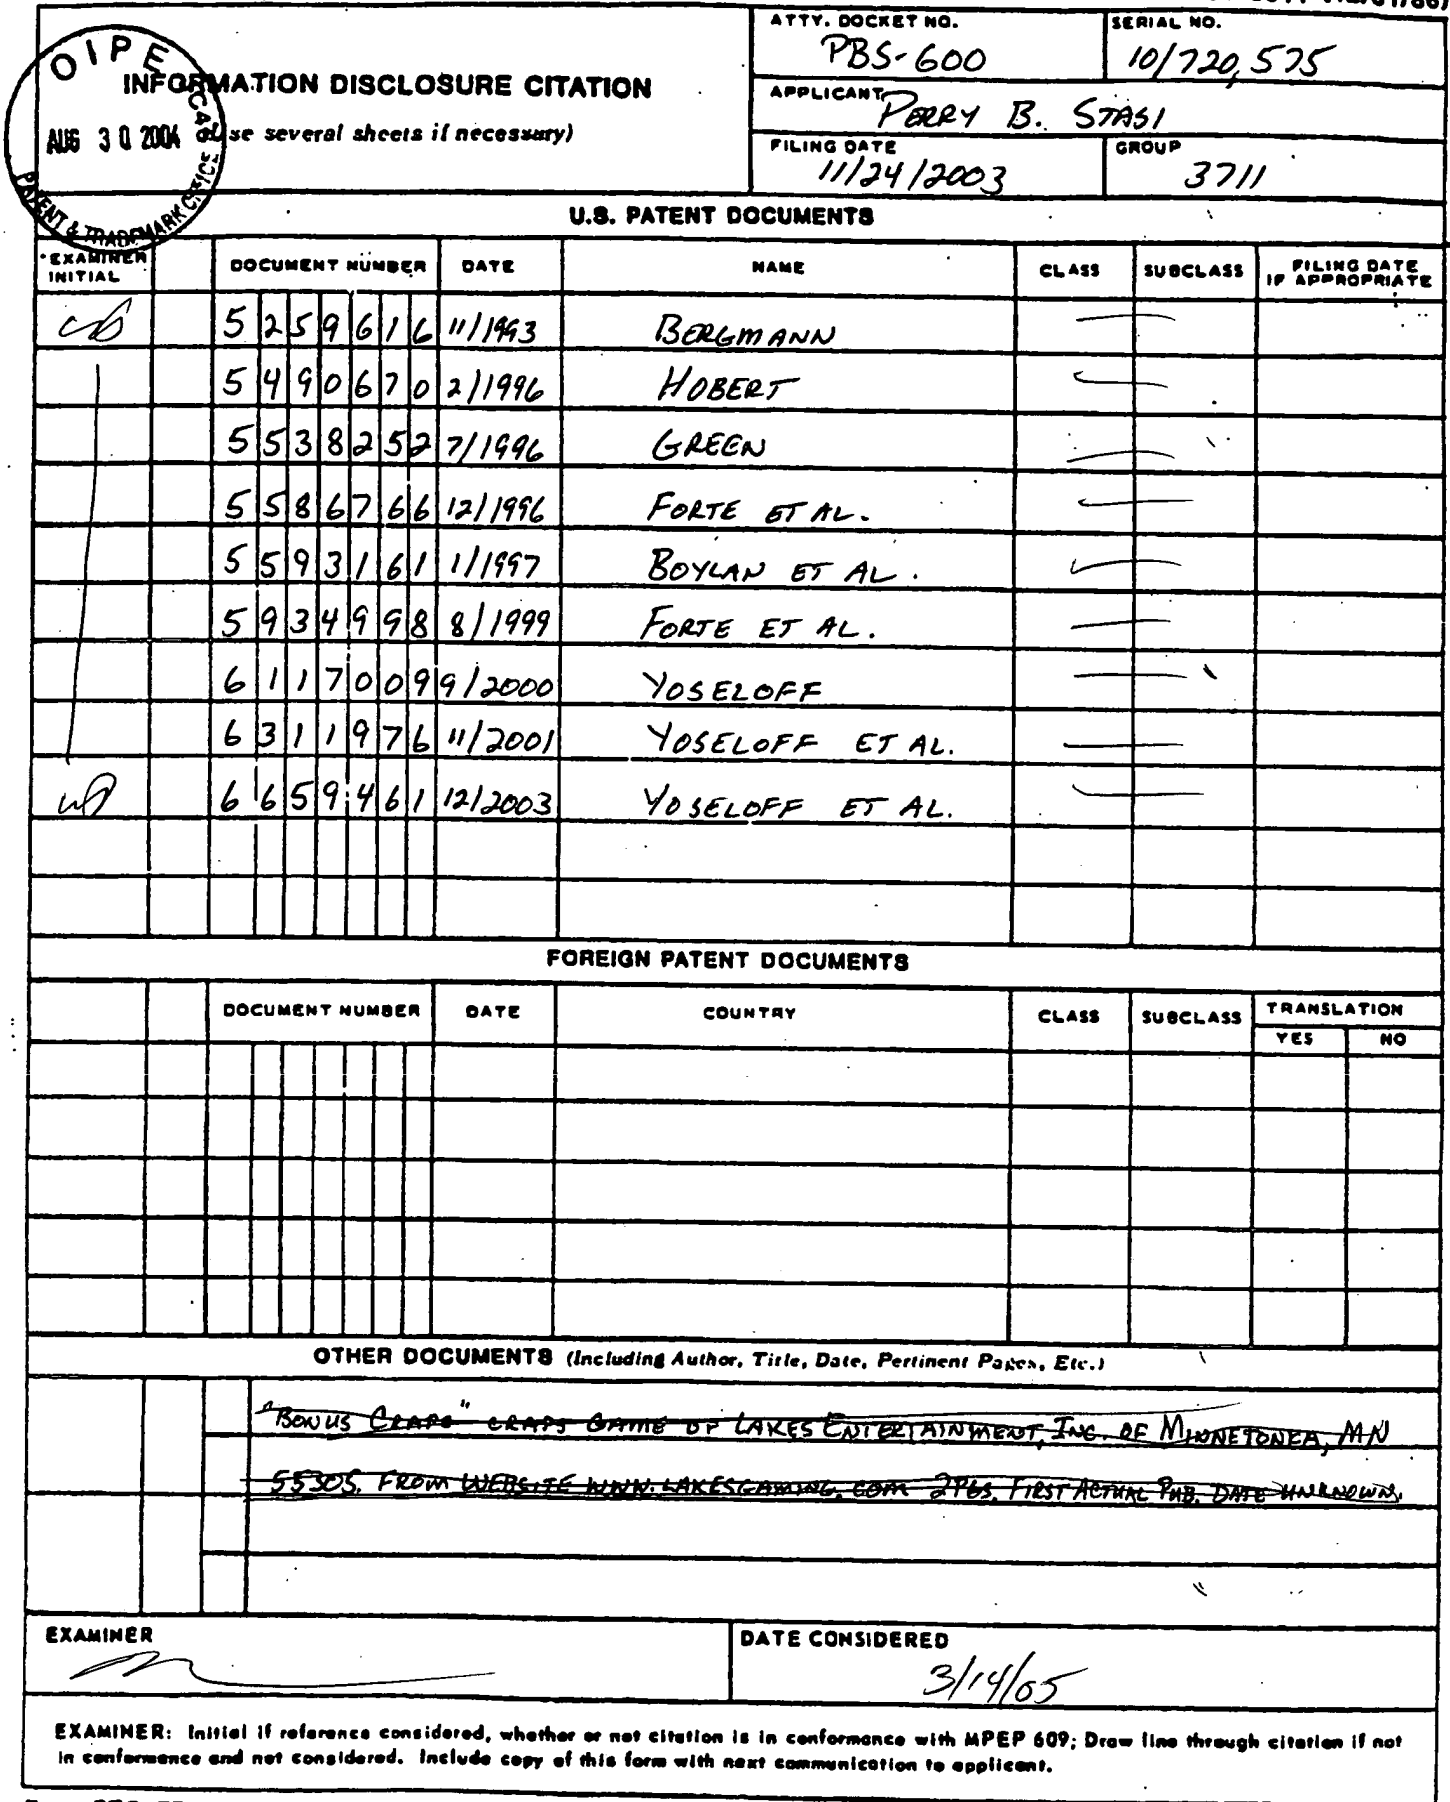 ATTY. DOCKET NO.
PBS-600
SERIAL NO.
10/720,575
OIPE
AUG 30 2004
PATENT & TRADEMARK OFFICE
INFORMATION DISCLOSURE CITATION
(Use several sheets if necessary)
APPLICANT
PERRY B. STASI
FILING DATE
11/24/2003
GROUP
3711
U.S. PATENT DOCUMENTS
*EXAMINER INITIAL DOCUMENT NUMBER DATE NAME CLASS SUBCLASS FILING DATE IF APPROPRIATE
5259616 11/1993 BERGMANN
5490670 2/1996 HOBERT
5538252 7/1996 GREEN
5586766 12/1996 FORTE ET AL.
5593161 1/1997 BOYLAN ET AL.
5934998 8/1999 FORTE ET AL.
6117009 9/2000 YOSELOFF
6311976 11/2001 YOSELOFF ET AL.
6659461 12/2003 YOSELOFF ET AL.
FOREIGN PATENT DOCUMENTS
DOCUMENT NUMBER DATE COUNTRY CLASS SUBCLASS TRANSLATION
YES NO
OTHER DOCUMENTS (Including Author, Title, Date, Pertinent Pages, Etc.)
"BONUS CRAPS" CRAPS GAME OF LAKES ENTERTAINMENT, INC. OF MINNETONKA, MN
55305, FROM WEBSITE WWW.LAKESGAMING.COM 2PGS, FIRST ACTUAL PUB. DATE UNKNOWN.
EXAMINER
DATE CONSIDERED
3/14/05
EXAMINER: Initial if reference considered, whether or not citation is in conformance with MPEP 609; Draw line through citation if not
in conformance and not considered. Include copy of this form with next communication to applicant.